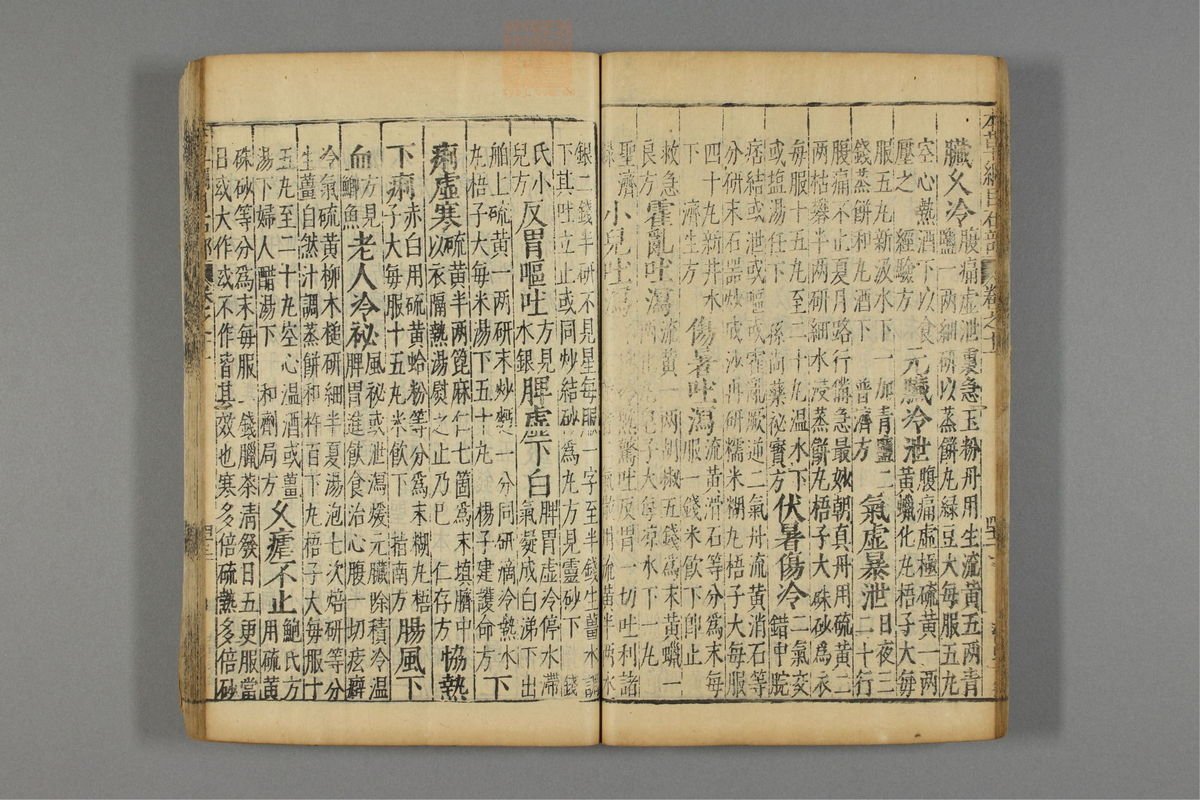 臟久冷腹痛虛泄裏急玉粉丹用生流黃五兩青
鹽一兩細研以蒸餅丸綠豆大每服五丸
空心熱酒下以食
壓之 經驗方
元臟冷泄腹痛虛極硫黃一兩
黃蠟化丸梧子大每
服五丸新汲水下一加青鹽二
錢蒸餅和丸酒下 普濟方
氣虛暴泄日夜三
二十行
腹痛不止夏月路行備急最妙朝真丹用硫黃二
兩枯礬半兩研細水浸蒸餅丸梧子大硃砂爲衣
每服十五丸至二十丸溫水下
或盐湯任下 孫尚藥秘寶方
伏暑傷冷二氣交
錯中脘
痞結或泄或嘔或霍亂厥逆二氣丹流黃消石等
分研末石器炒成沙再研糯米糊丸梧子大每服
四十丸新井水
下 濟生方
傷暑吐瀉流黃滑石等分爲末每
服一錢米飲下卽止
救急
良方
霍亂吐瀉流黃一兩胡椒五錢爲末黃蠟一
兩化丸皂子大每凉水下一丸
聖濟
小兒吐瀉
熱驚吐反胃一切吐利諸
流黃半兩水
銀二錢半研不見星每服一字至半錢生薑水調
下其吐立止或同炒結砂爲丸方見靈砂下 錢
氏小
兒方
反胃嘔吐方見
水銀
脾虛下白脾胃虛冷停水滯
氣凝成白涕下出
舶上硫黃一兩研末炒麪一分同研滴冷熱水
丸梧子大每米湯下五十丸 楊子建護命方
下
痢虛寒硫黃半兩蓖麻仁七箇爲末塡臍中
以衣隔熱湯熨之止乃已 仁存方
協熱
下痢赤白用硫黃蛤粉等分爲末糊丸梧
子大每服十五丸米飲下 指南方
腸風下
血方見
鯽魚
老人冷祕風秘或泄瀉煖元臟除積冷溫
脾胃進飲食治心腹一切痃癖
冷氣硫黃柳木槌研細半夏湯泡七次焙研等分
生薑自然汁調蒸餅和杵百下丸梧子大每服十
五丸至二十丸空心溫酒或薑
湯下婦人醋湯下 和劑局方
久瘧不止鮑氏方
用硫黃
硃砂等分爲末每服二錢臘茶清發日五更服當
日或大作或不作皆其效也寒多倍硫熱多倍砂